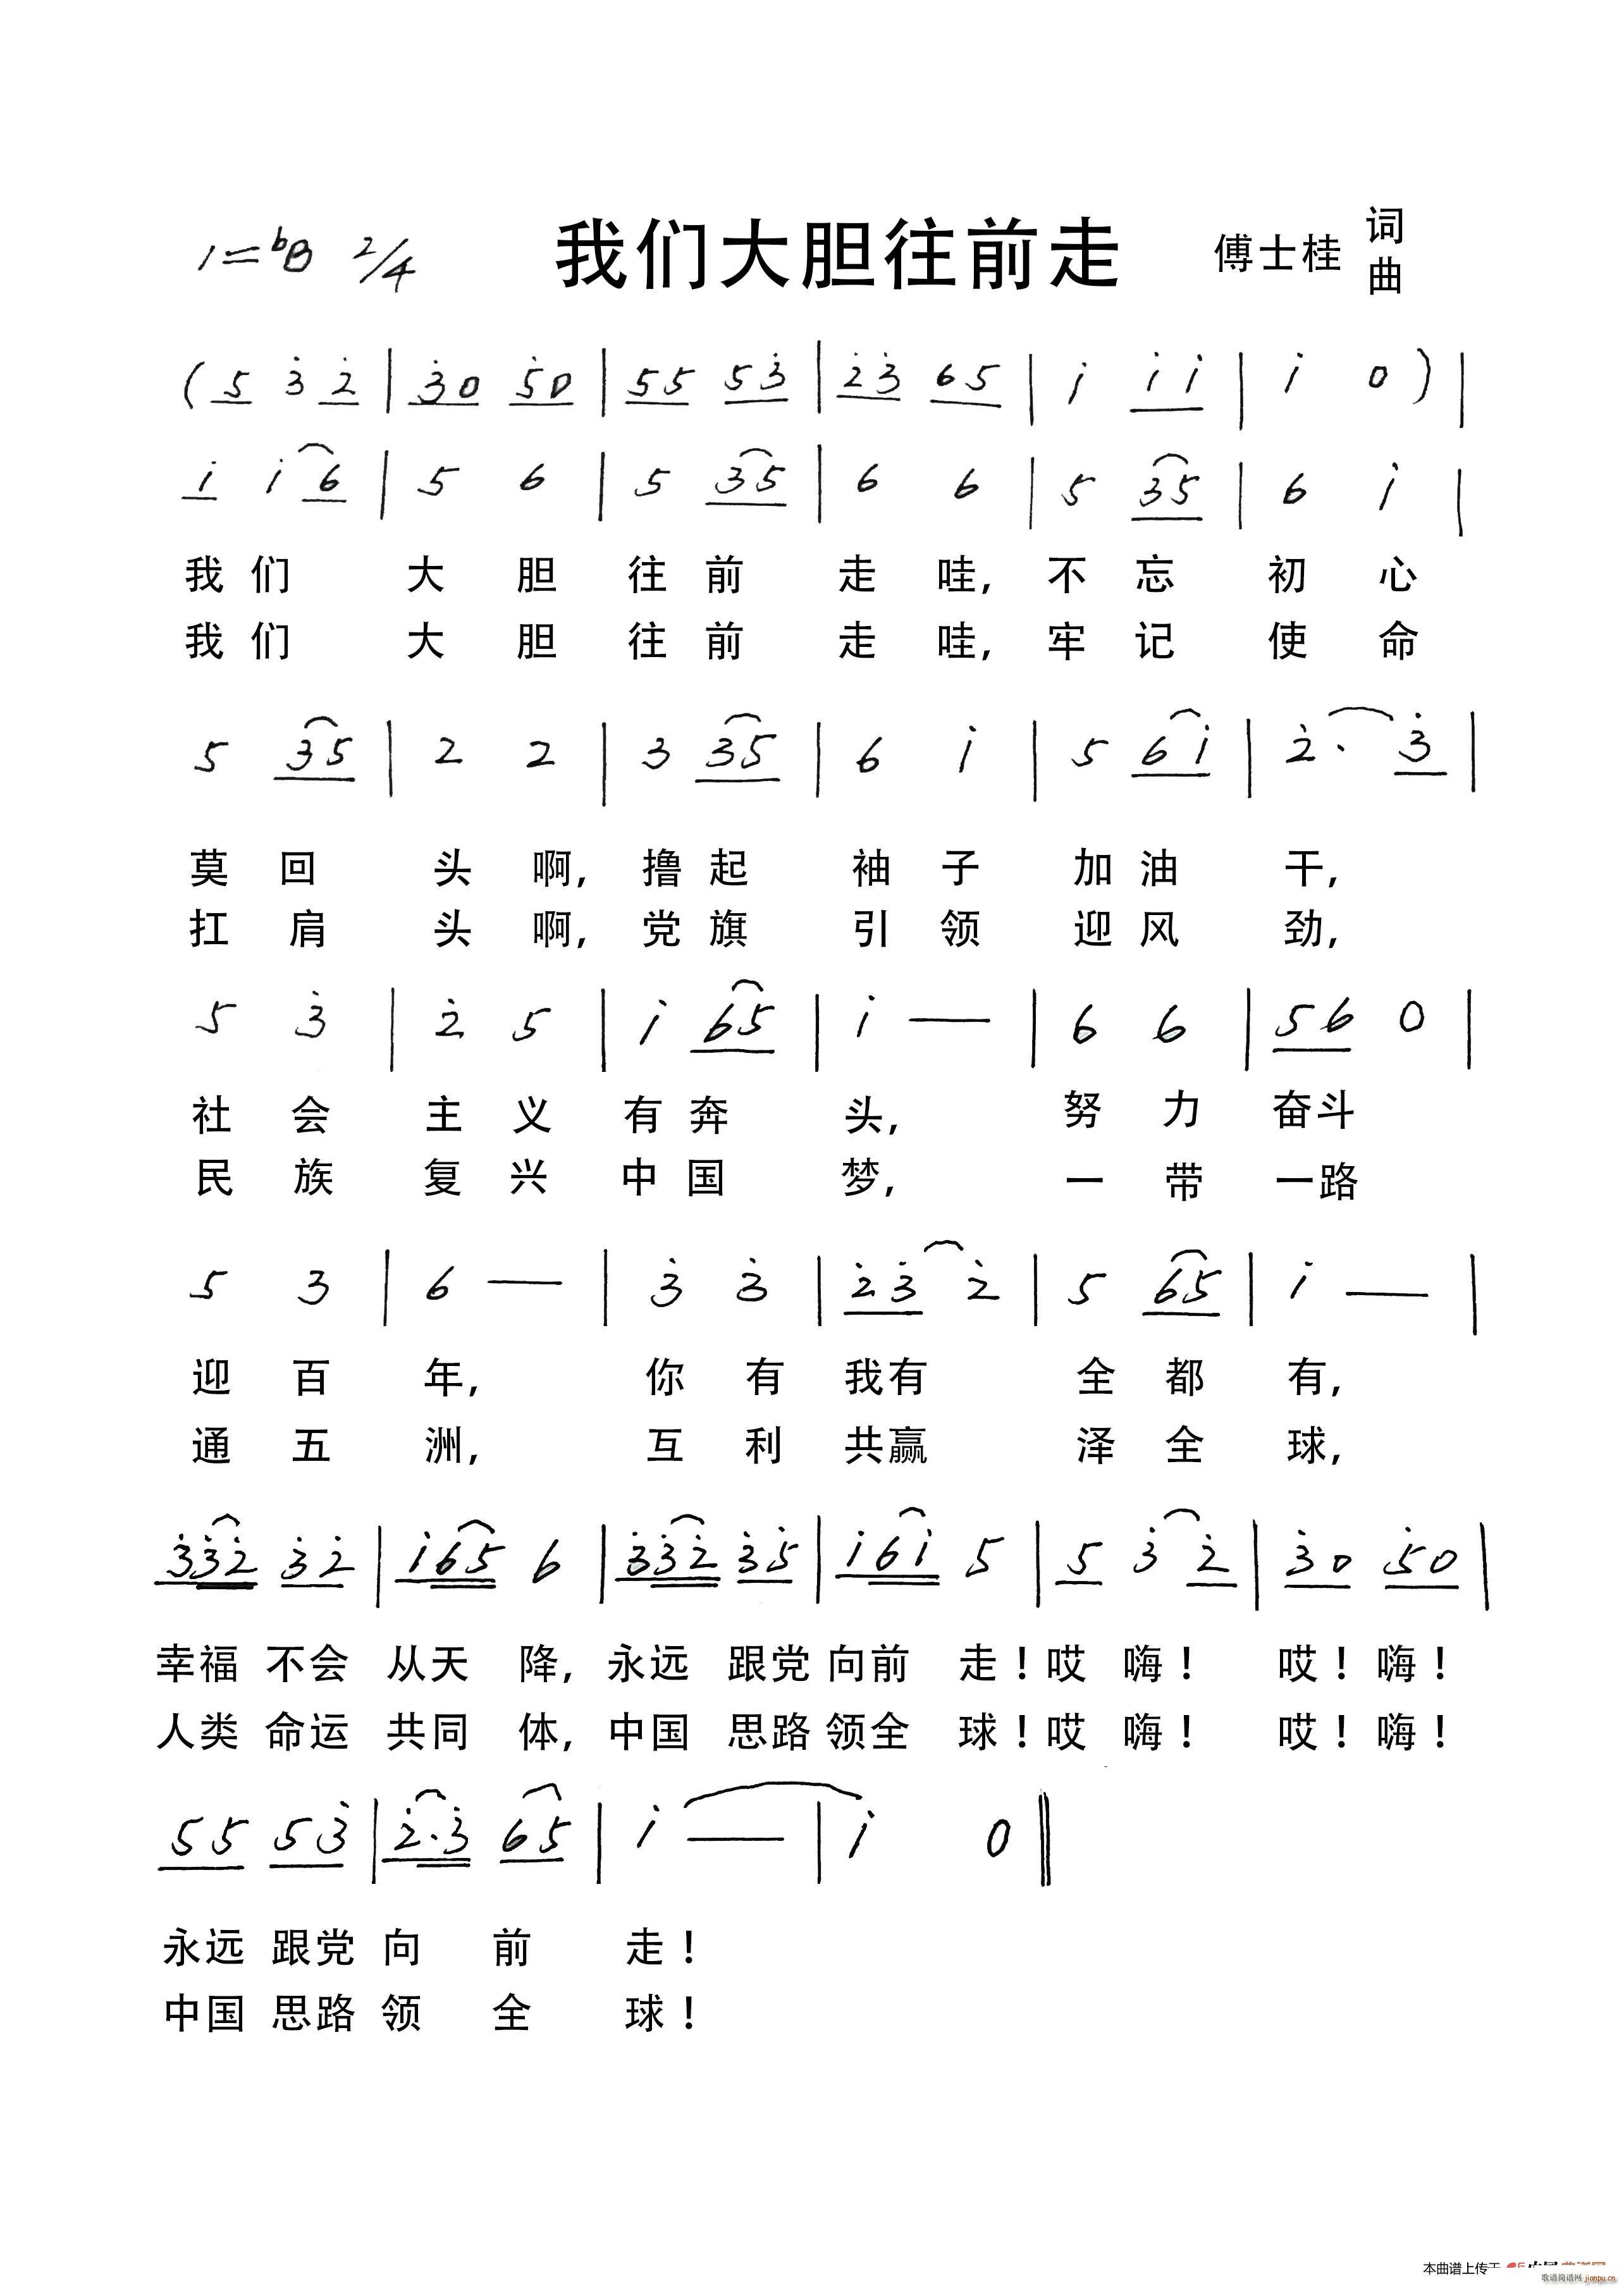 1=bB 2/4 我们大胆往前走 傅士桂 词曲
( 5 3̇ 2̇ | 3̇0 5̇0 | 55 53̇ | 2̇3̇ 65 | 1̇ 1̇1̇ | 1̇ 0 ) |
1̇ 1̇ 6 | 5 6 | 5 35 | 6 6 | 5 35 | 6 1̇ |
我们 大胆 往前 走哇, 不忘 初心
我们 大胆 往前 走哇, 牢记 使命
5 35 | 2 2 | 3 35 | 6 1̇ | 5 61̇ | 2̇· 3̇ |
莫回 头啊, 撸起 袖子 加油 干,
扛肩 头啊, 党旗 引领 迎风 劲,
5 3̇ | 2̇ 5 | 1̇ 65 | 1̇ — | 6 6 | 56 0 |
社会 主义 有奔 头, 努力 奋斗
民族 复兴 中国 梦, 一带 一路
5 3 | 6 — | 3̇ 3̇ | 2̇3̇ 2̇ | 5 65 | 1̇ — |
迎百 年, 你有 我有 全都 有,
通五 洲, 互利 共赢 泽全 球,
3̇3̇2̇ 3̇2̇ | 1̇65 6 | 3̇3̇2̇ 3̇5̇ | 1̇61̇ 5 | 5 3̇ 2̇ | 3̇0 5̇0 |
幸福 不会 从天 降, 永远 跟党 向前 走！哎 嗨！ 哎！嗨！
人类 命运 共同 体, 中国 思路 领全 球！哎 嗨！ 哎！嗨！
55 53̇ | 2̇·3̇ 65 | 1̇ — | 1̇ 0 ‖
永远 跟党 向 前 走！
中国 思路 领 全 球！
本曲谱上传于
歌谱简谱网 jianpu.cn